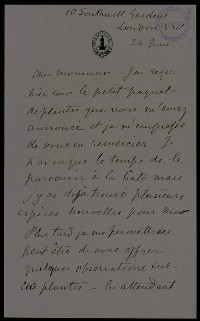 10 Southwell Gardens
London S.W.
26 June
Cher Monsieur J'ai reçu
hier soir le petit paquet
de plantes que vous m'avez
annoncé et je m'empresse
de vous en remercier. Je
n'ai eu que le temps de le
parcourir à la hâte mais
j'y ai déjà trouvé plusieurs
espèces nouvelles pour moi
Plus tard je me permettrai
peut être de vous offrir
quelques observations sur
ces plantes - En attendant